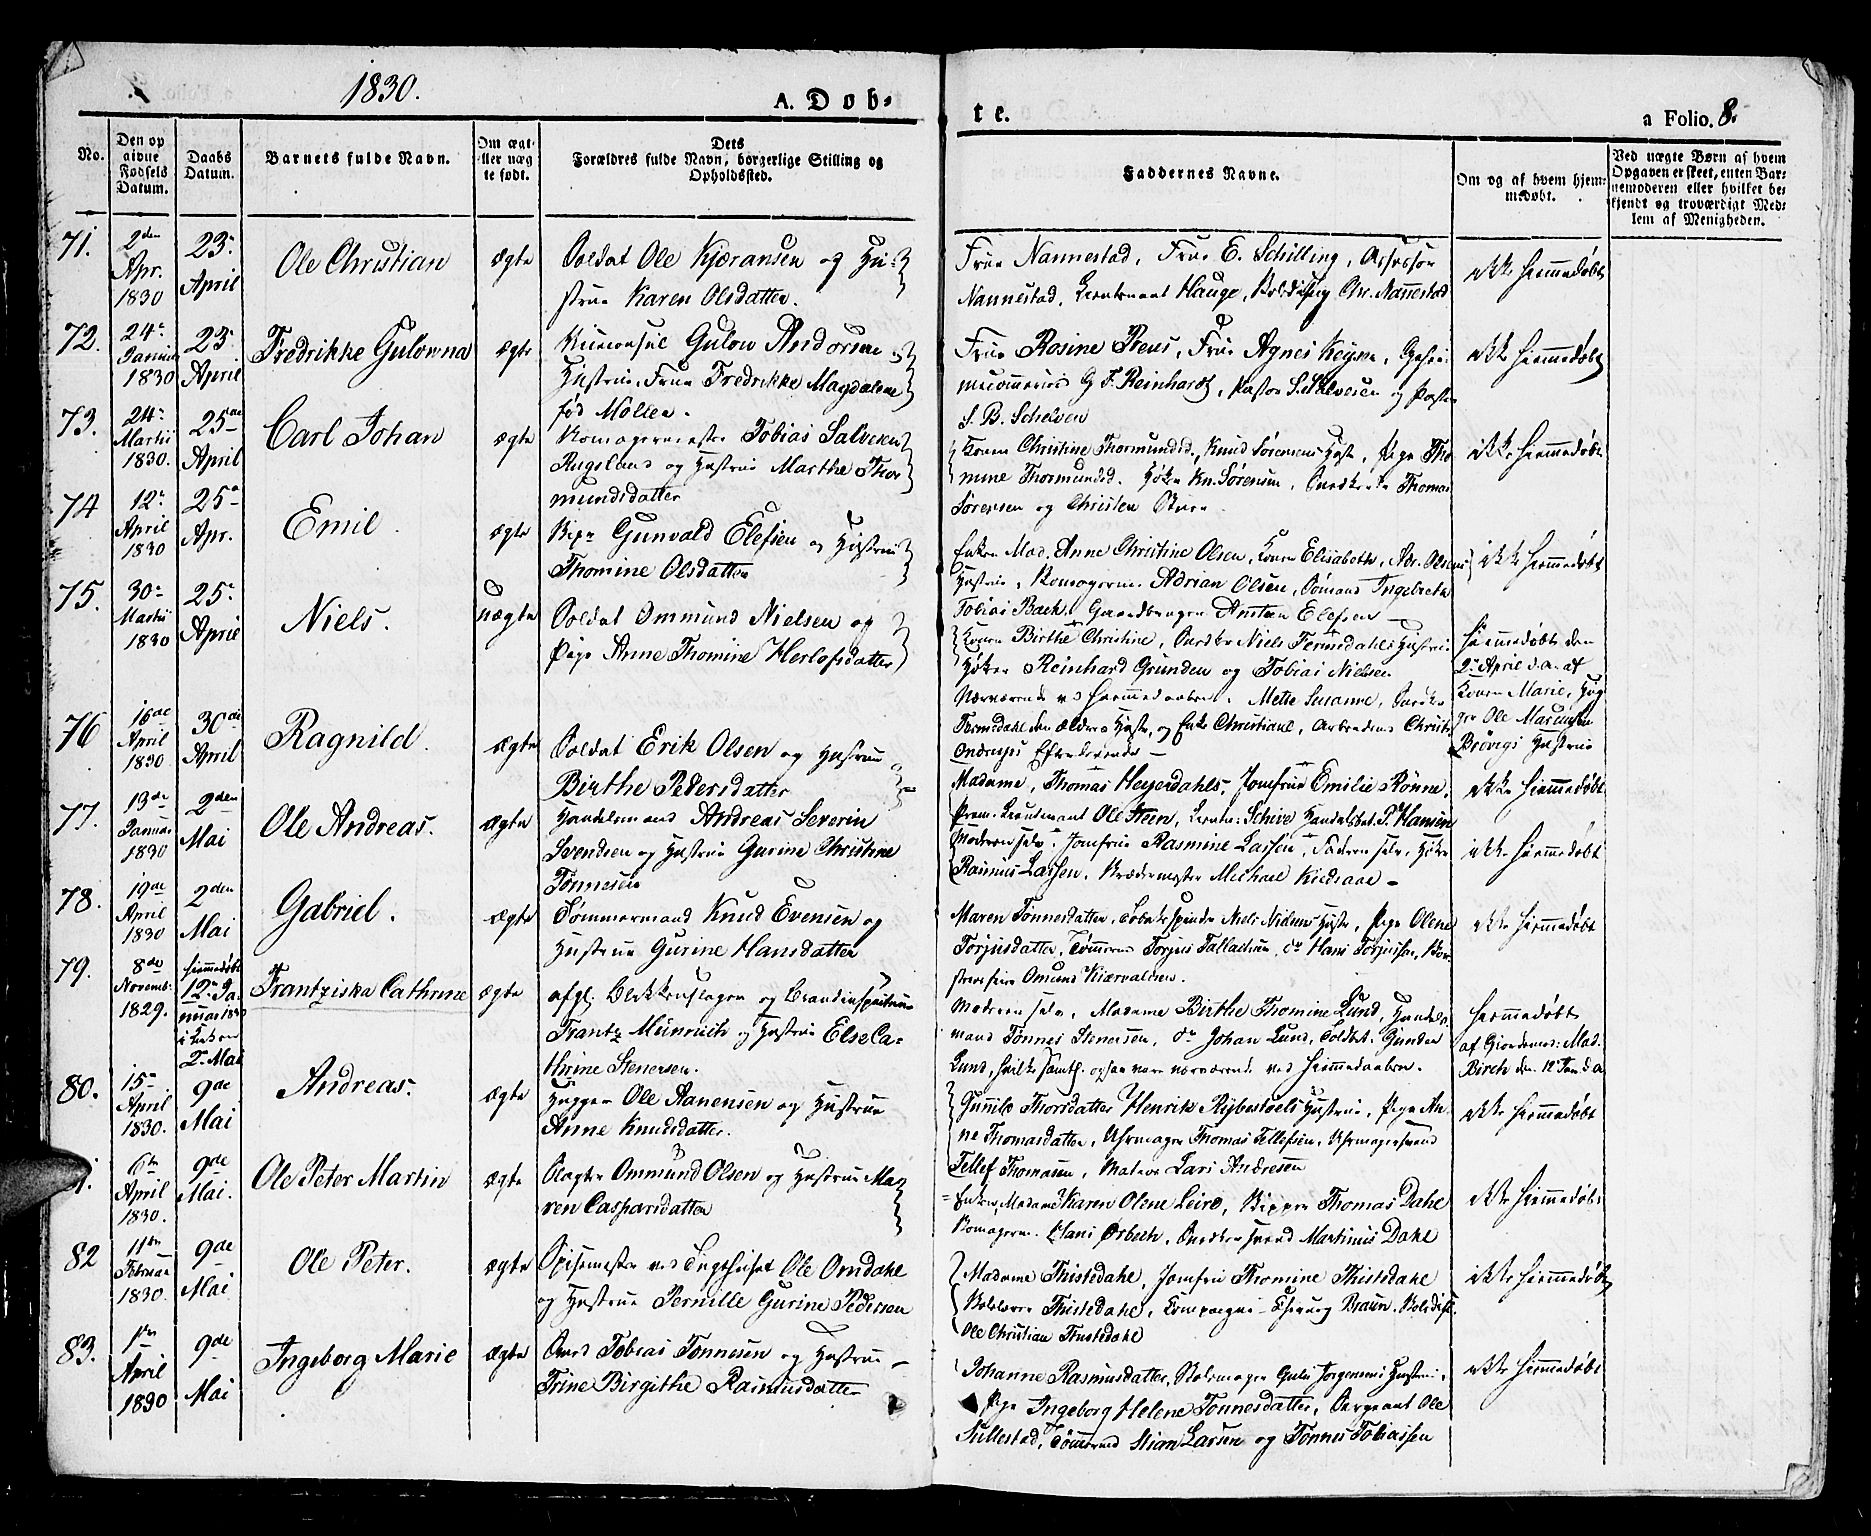 1830.
A. Døb-
te.
a Folio. 8.
No.
Den op
givne
Fødsels
Datum.
Daabs
Datum.
Barnets fulde Navn.
Om ægt-
eller uæg
te født.
Dets
Forældres fulde Navn, borgerlige Stilling og
Opholdssted.
Faddernes Navne.
Om og af hvem hjem-
medøbt.
Ved uægte Børn af hvem
Opgaven er skeet, enten Bar-
nemoderen eller hvilket be-
kjendt og troværdigt Med-
lem af Menigheden.
71.
2den
Apr.
1830
23.
April
Ole Christian
ægte
Soldat Ole Kjæransen og Hu-
strue Karen Olsdatter.
Frue Nannestad, Frue E. Schilling, Assessor
Nannestad, Lieutenant Hauge, Chr. Nannestad
ikke hiemmedøbt
72.
24.
Januar
1830
23.
April
Fredrikke Gulowna
ægte
Gulow Andorsen
Hustrue, Frue Fredrikke Magdalene
fød Møller.
Frue Rosine Preus, Frue Agnes Keyser,
G F. Reinhardt, Pastor S. Salvesen og
S. B. Schelven
ikke hiemmedøbt
73.
24.
Martii
1830.
25de
April
Carl Johan
ægte
Tobias Salvesen
Rugeland og Hustrue Marthe Thor
mundsdatter
Konen Christine Thormundsd., Knud Sørensens Hustr, Pige Tho
mine Thormundsd. Høker Kn. Sørensen, Thomas
Sørensen og Christen
ikke hiemmedøbt
74
12.
April
1830
25
Apr.
Emil.
ægte
Gunvald Elefsen og Hustrue
Thomine Olsdatter
Enken Mad. Anne Christine Olsen, Konen Elisabeth, Adr. Olsens
Hustrue, Adrian Olsen, Sømand Ingebreth
Tobias Bach, Elefsen
ikke hiemmedøbt
75.
30
Martii
1830
25.
April
Niels.
uægte
Soldat Ommund Nielsen og
Pige Anne Thomine Herlofsdatter
Konen Birthe Christine, Niels Fermedahls Hustrue
Høker Reinhard Grunden og Tobias Nielsen
Nærværende ved hiemmedaaben. Mette Susanne,
Fermedahl den ældres Hustr, og Enke Christiane,
Efterladende
hiemmedøbt den
2. April d. a. af
Konen Marie,
Ole
Brøvigs Hustrue
76
16de
April
1830
30de
April
Ragnild.
ægte
Soldat Erik Olsen og Hustrue
Birthe Pedersdatter
Madame, Thomas Heyerdahls, Jomfrue Emilie Rønne,
Prem: Lieutenant Ole Steen, P. Hansen
ikke hiemmedøbt
77.
13de
Januar
1830
2den
Mai
Ole Andreas.
ægte
Handelsmand Andreas Severin
Svendsen og Hustrue Gurine Christine
Tønnesen
Moderen selv, Jomfrue Rasmine Lassen, Faderen selv, Høker
Rasmus Lassen, Michael
ikke hiemmedøbt
78.
19de
April
1830
2den
Mai
Gabriel.
ægte
Tømmermand Knud Evensen og
Hustrue Gurine Hansdatter
Maren Tønnesdatter, Niels Nielsens Hustr, Pige Olene
Torjusdatter, Tømmermd Torjus Tallaksen, do Hans Torjussen,
ikke hiemmedøbt
79.
8de
Novemb:
1829.
hiemmedøbt
12. Ja
nuar 1830
i Kirken
2. Mai
Frantziska Cathrine
ægte
afgl. Blikkenslager og
Frantz Münnich og Hustrue Else Ca-
thrine Stenersen.
Moderen selv, Madame Birthe Thomine Lund, Handels-
mand Tønnes Stenersen, do Johan Lund, Gunder
Lund, hvilke samtl. ogsaa vare nærværende ved hiemmedaaben.
hiemmedøbt
af Giordemod: Mad.
Birch den 12 Jan d. a.
80.
15
April
1830.
9de
Mai
Andreas.
ægte
Ole Aanensen og Hustrue
Anne Knudsdatter.
Gunnild Thorsdatter Henrik Hustrue, Pige An-
ne Thomasdatter, Uhrmager Thomas Tellefsen, Uhrmagersvend
Tellef Thomasen, Matros Lars Andresen
ikke hiemmedøbt
6te
April
1830.
9de
Mai.
Ole Peter Martin
ægte
Slagter Ommund Olsen og Hustrue Ma-
ren Caspersdatter
Enken, Madame Karen Olene Leire, Thomas Dahl
Hans Ørbech, Martinus Dahl
ikke hiemmedøbt
82
11te
Februar
1830.
9de
Mai
Ole Peter.
ægte
Spisemester ved Tugthuset Ole Omdahl
og Hustrue Pernille Gurine Pedersen
Madame Thistedahl, Jomfru Thomine Thistedahl
Thistedahl, Compagnie-Chirurg Braun,
Ole Christian Thistedahl
ikke hiemmedøbt
83.
1ste
April
1830
9de
Mai
Ingeborg Marie
ægte
Tobias Tønnesen og Hustrue
Trine Birgithe Rasmusdatter
Johanne Rasmusdatter, Gulu Jørgensens Hustrue,
Pige Ingeborg Helene Tønnesdatter, Sergeant Ole
Sillestad, Tømmermd Stian Larsen og Tønnes Tobiassen
ikke hiemmedøbt